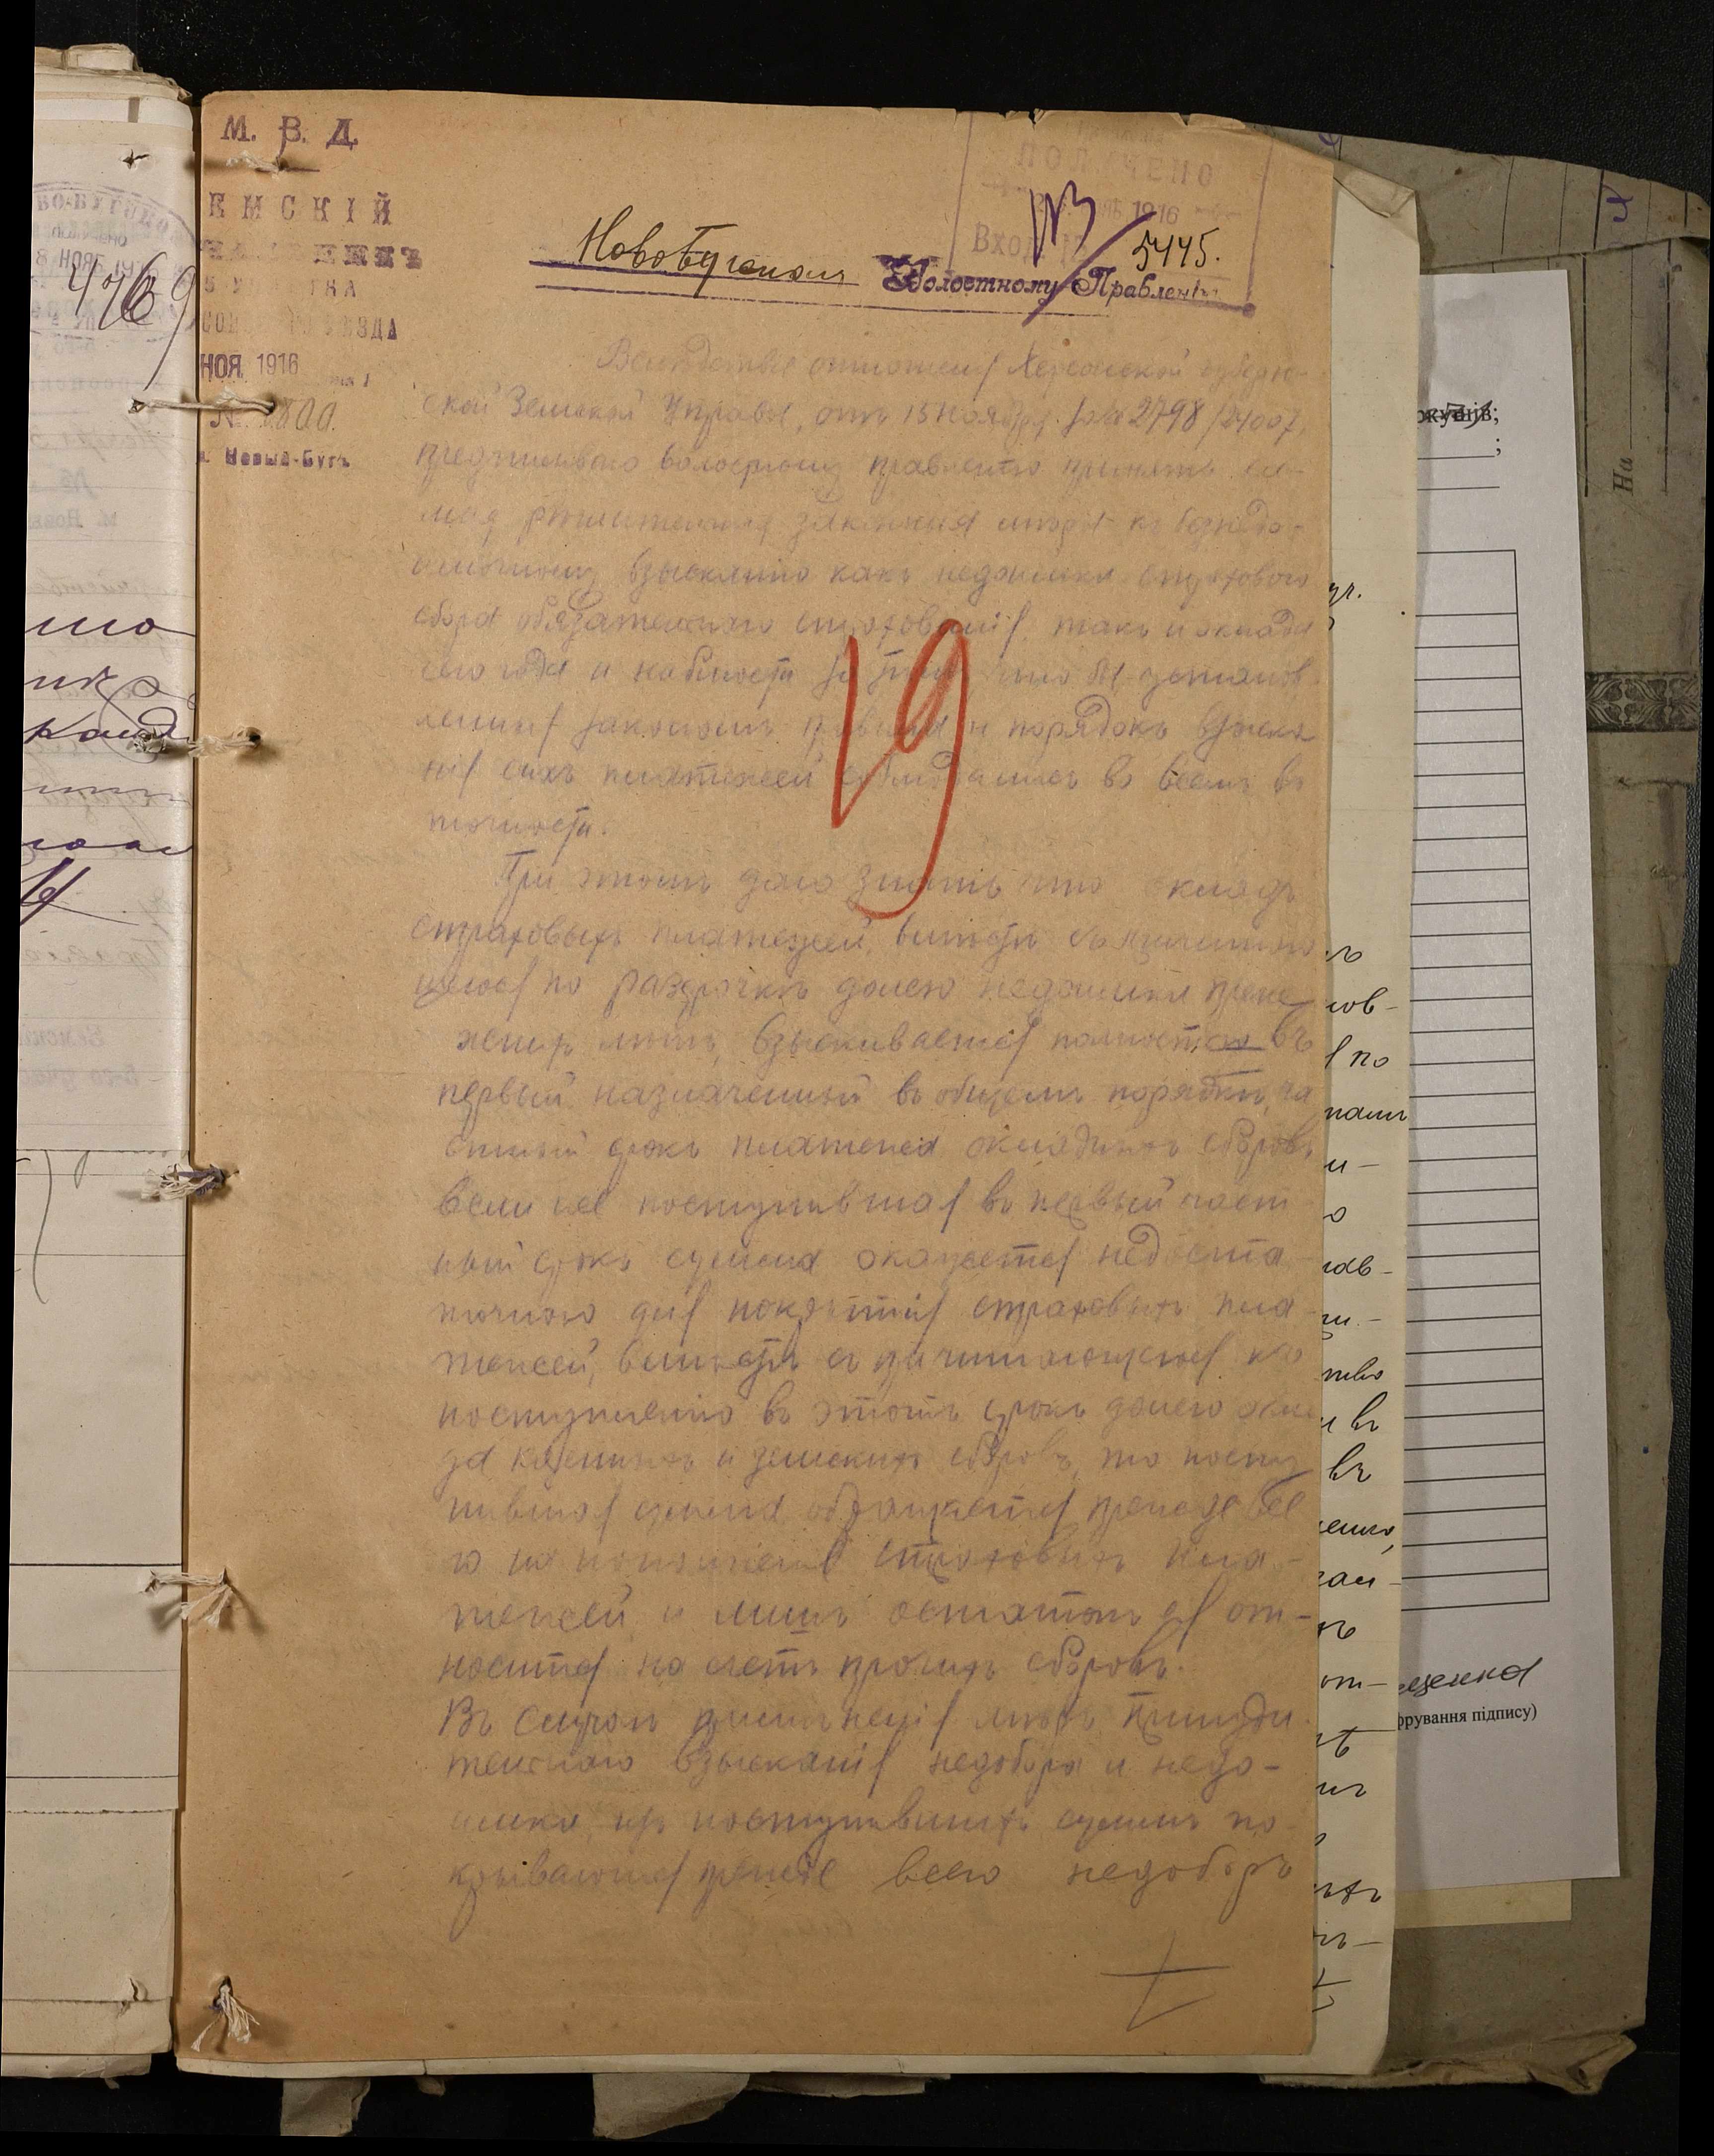 М. В. Д.
ЕМСКІЙ
НОЯ 1916
№ 800.
Новый-Бугъ
ПОЛУЧЕНО
1916
5445.
НовоБугскому Волостному Правленію
Вслѣдствіе отношенія Херсонской губерн-
ской Земской Управы, отъ 15 Ноября за № 2798/21007,
предписываю волостному правленію принять са-
мыя рѣшительныя законныя мѣры къ безнедо-
имочному взысканію какъ недоимки страхового
сбора обязательнаго страхованія, такъ и оклада
сего года и наблюсти за тѣмъ, что бы установ-
ленныя закономъ правила и порядокъ взыска
нія сихъ платежей соблюдались во всемъ въ
точности.
При этомъ даю знать что окладъ
страховыхъ платежей, вмѣстѣ съ причитаю
щеюся по разсрочкѣ долею недоимки преж
нихъ лѣтъ, взыскивается полностью въ
первый назначенный въ общемъ порядкѣ ча
стный срокъ платежа окладныхъ сборовъ
если же поступившая въ первый част-
ный срокъ сумма окажется недоста-
точною для покрытія страховыхъ пла-
тежей, вмѣстѣ съ причитающеюся къ
поступленію въ этотъ срокъ долею окла
да казенныхъ и земскихъ сборовъ, то посту
пившая сумма обращается прежде все
го на пополненіе страховыхъ пла-
тежей, и лишь остатокъ ея от-
носится на счетъ прочихъ сборовъ.
Въ случаѣ примѣненія мѣръ принуди
тельнаго взысканія недобора и недо-
имки, изъ поступившихъ суммъ по
крывается прежде всего недоборъ
19
4769